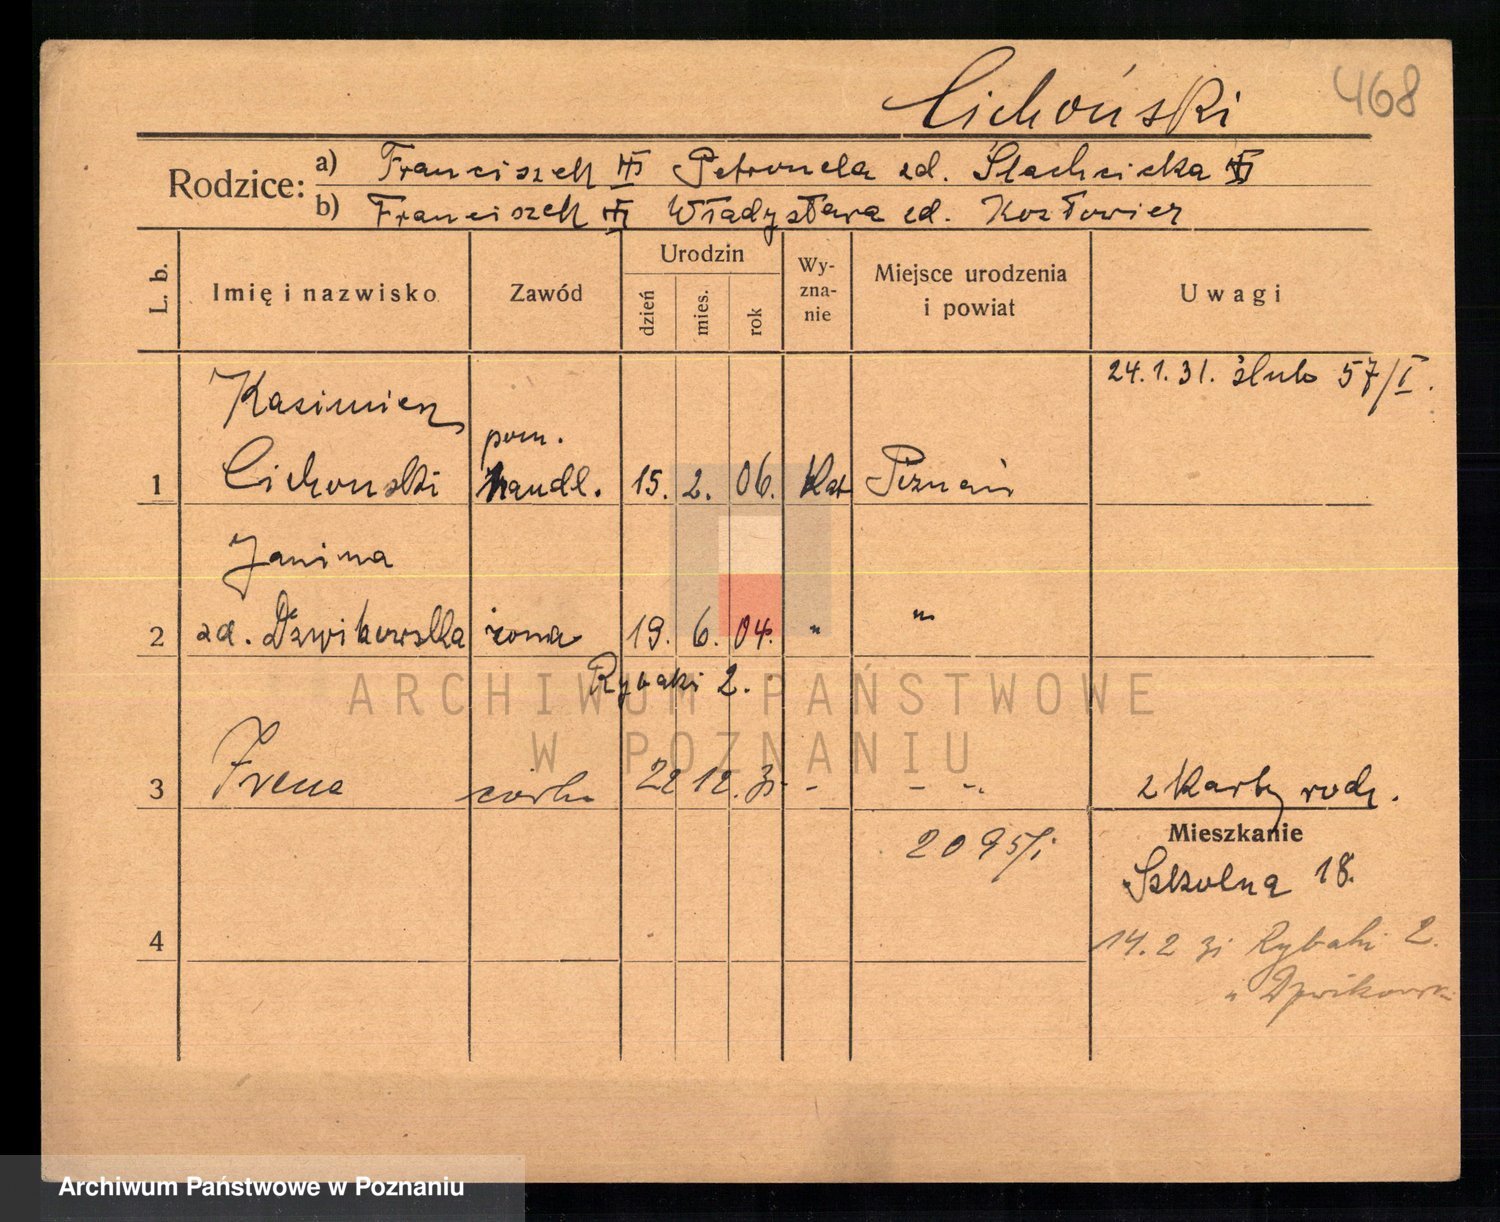 Cichoński
468
Rodzice: a) Franciszek Petronela zd. Slachcicka
b) Franciszek Władysława zd. Kozłowicz
L. b.
Imię i nazwisko
Zawód
Urodzin
dzień
mies.
rok
Wy-
zna-
nie
Miejsce urodzenia
i powiat
Uwagi
24.1.31. ślub 57/I.
Kazimierz
pom.
1 Cichoński handl. 15. 2. 06. Kat Poznań
Janina
2 zd. żona 19. 6. 04. " "
Rybaki 2.
3 Irena córka 22 12. 31 - - "
2 Karty rodz.
Mieszkanie
2095/I
Szkolna 18.
4
14.2 31 Rybaki 2.
ARCHIWUM PAŃSTWOWE
W POZNANIU
Archiwum Państwowe w Poznaniu